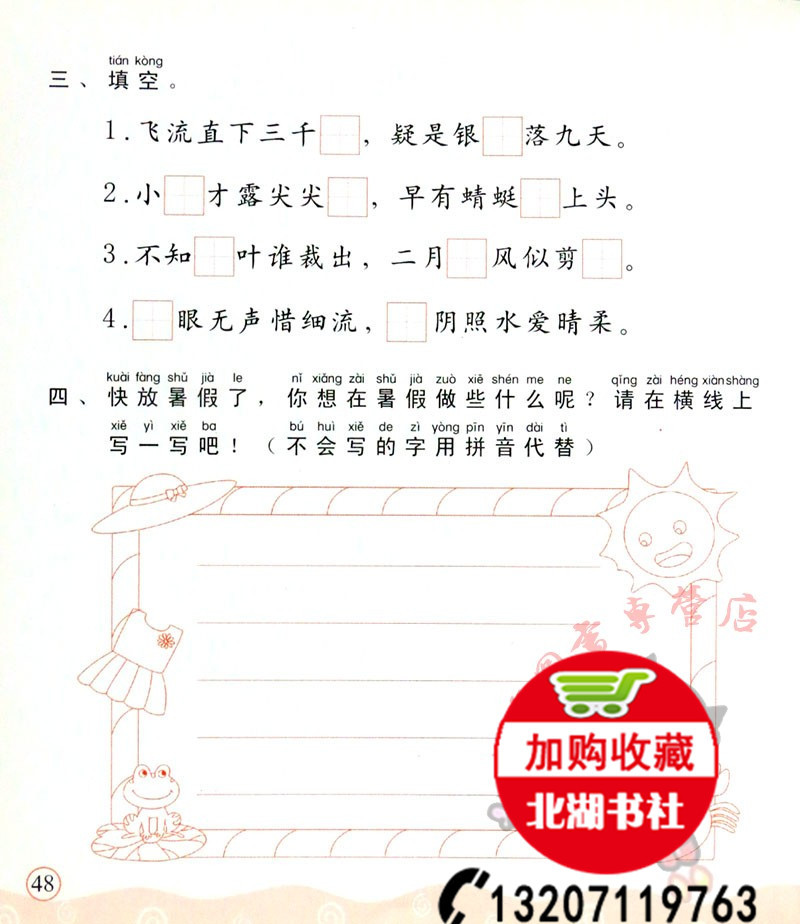 tián kòng
三、填空。
1.飞流直下三千□，疑是银□落九天。
2.小□才露尖尖□，早有蜻蜓□上头。
3.不知□叶谁裁出，二月□风似剪□。
4.□眼无声惜细流，□阴照水爱晴柔。
kuài fàng shǔ jià le nǐ xiǎng zài shǔ jià zuò xiē shén me ne qǐng zài héng xiàn shàng
四、快放暑假了，你想在暑假做些什么呢？请在横线上
xiě yì xiě ba bú huì xiě de zì yòng pīn yīn dài tì
写一写吧！（不会写的字用拼音代替）
专营店
加购收藏
北湖书社
48
13207119763